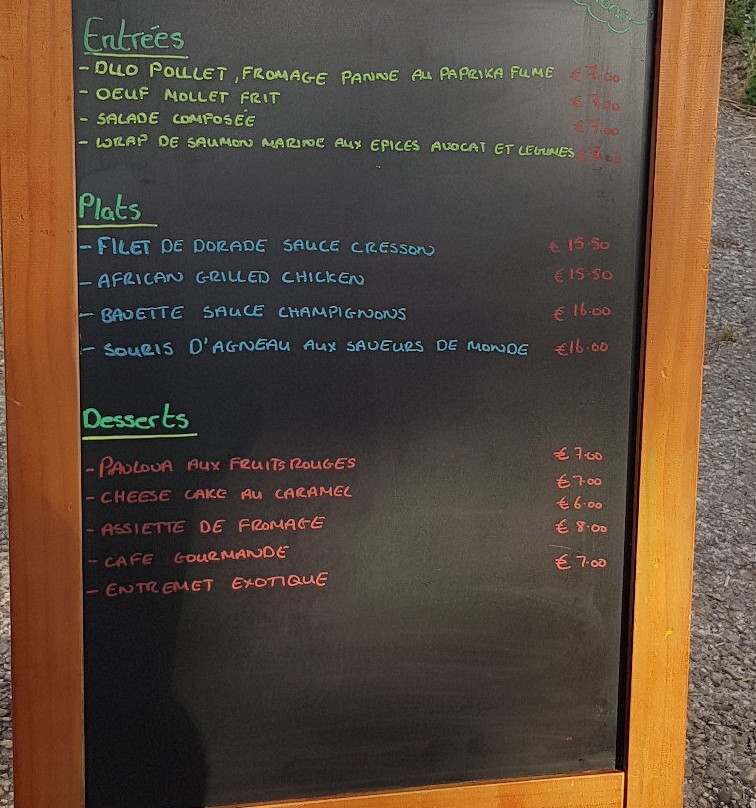 Entrées
- DUO POULET, FROMAGE PANNE AU PAPRIKA FUME € 7.00
- OEUF MOLLET FRIT € 7.00
- SALADE COMPOSÉE € 7.00
- WRAP DE SAUMON MARINE AUX EPICES AVOCAT ET LEGUMES
Plats
- FILET DE DORADE SAUCE CRESSON € 15.50
- AFRICAN GRILLED CHICKEN € 15.50
- BAVETTE SAUCE CHAMPIGNONS € 16.00
- SOURIS D'AGNEAU AUX SAVEURS DE MONDE €16.00
Desserts
- PAVLOVA AUX FRUITS ROUGES € 7.00
- CHEESE CAKE AU CARAMEL € 7.00
- ASSIETTE DE FROMAGE € 6.00
- CAFE GOURMANDE € 8.00
- ENTREMET EXOTIQUE € 7.00